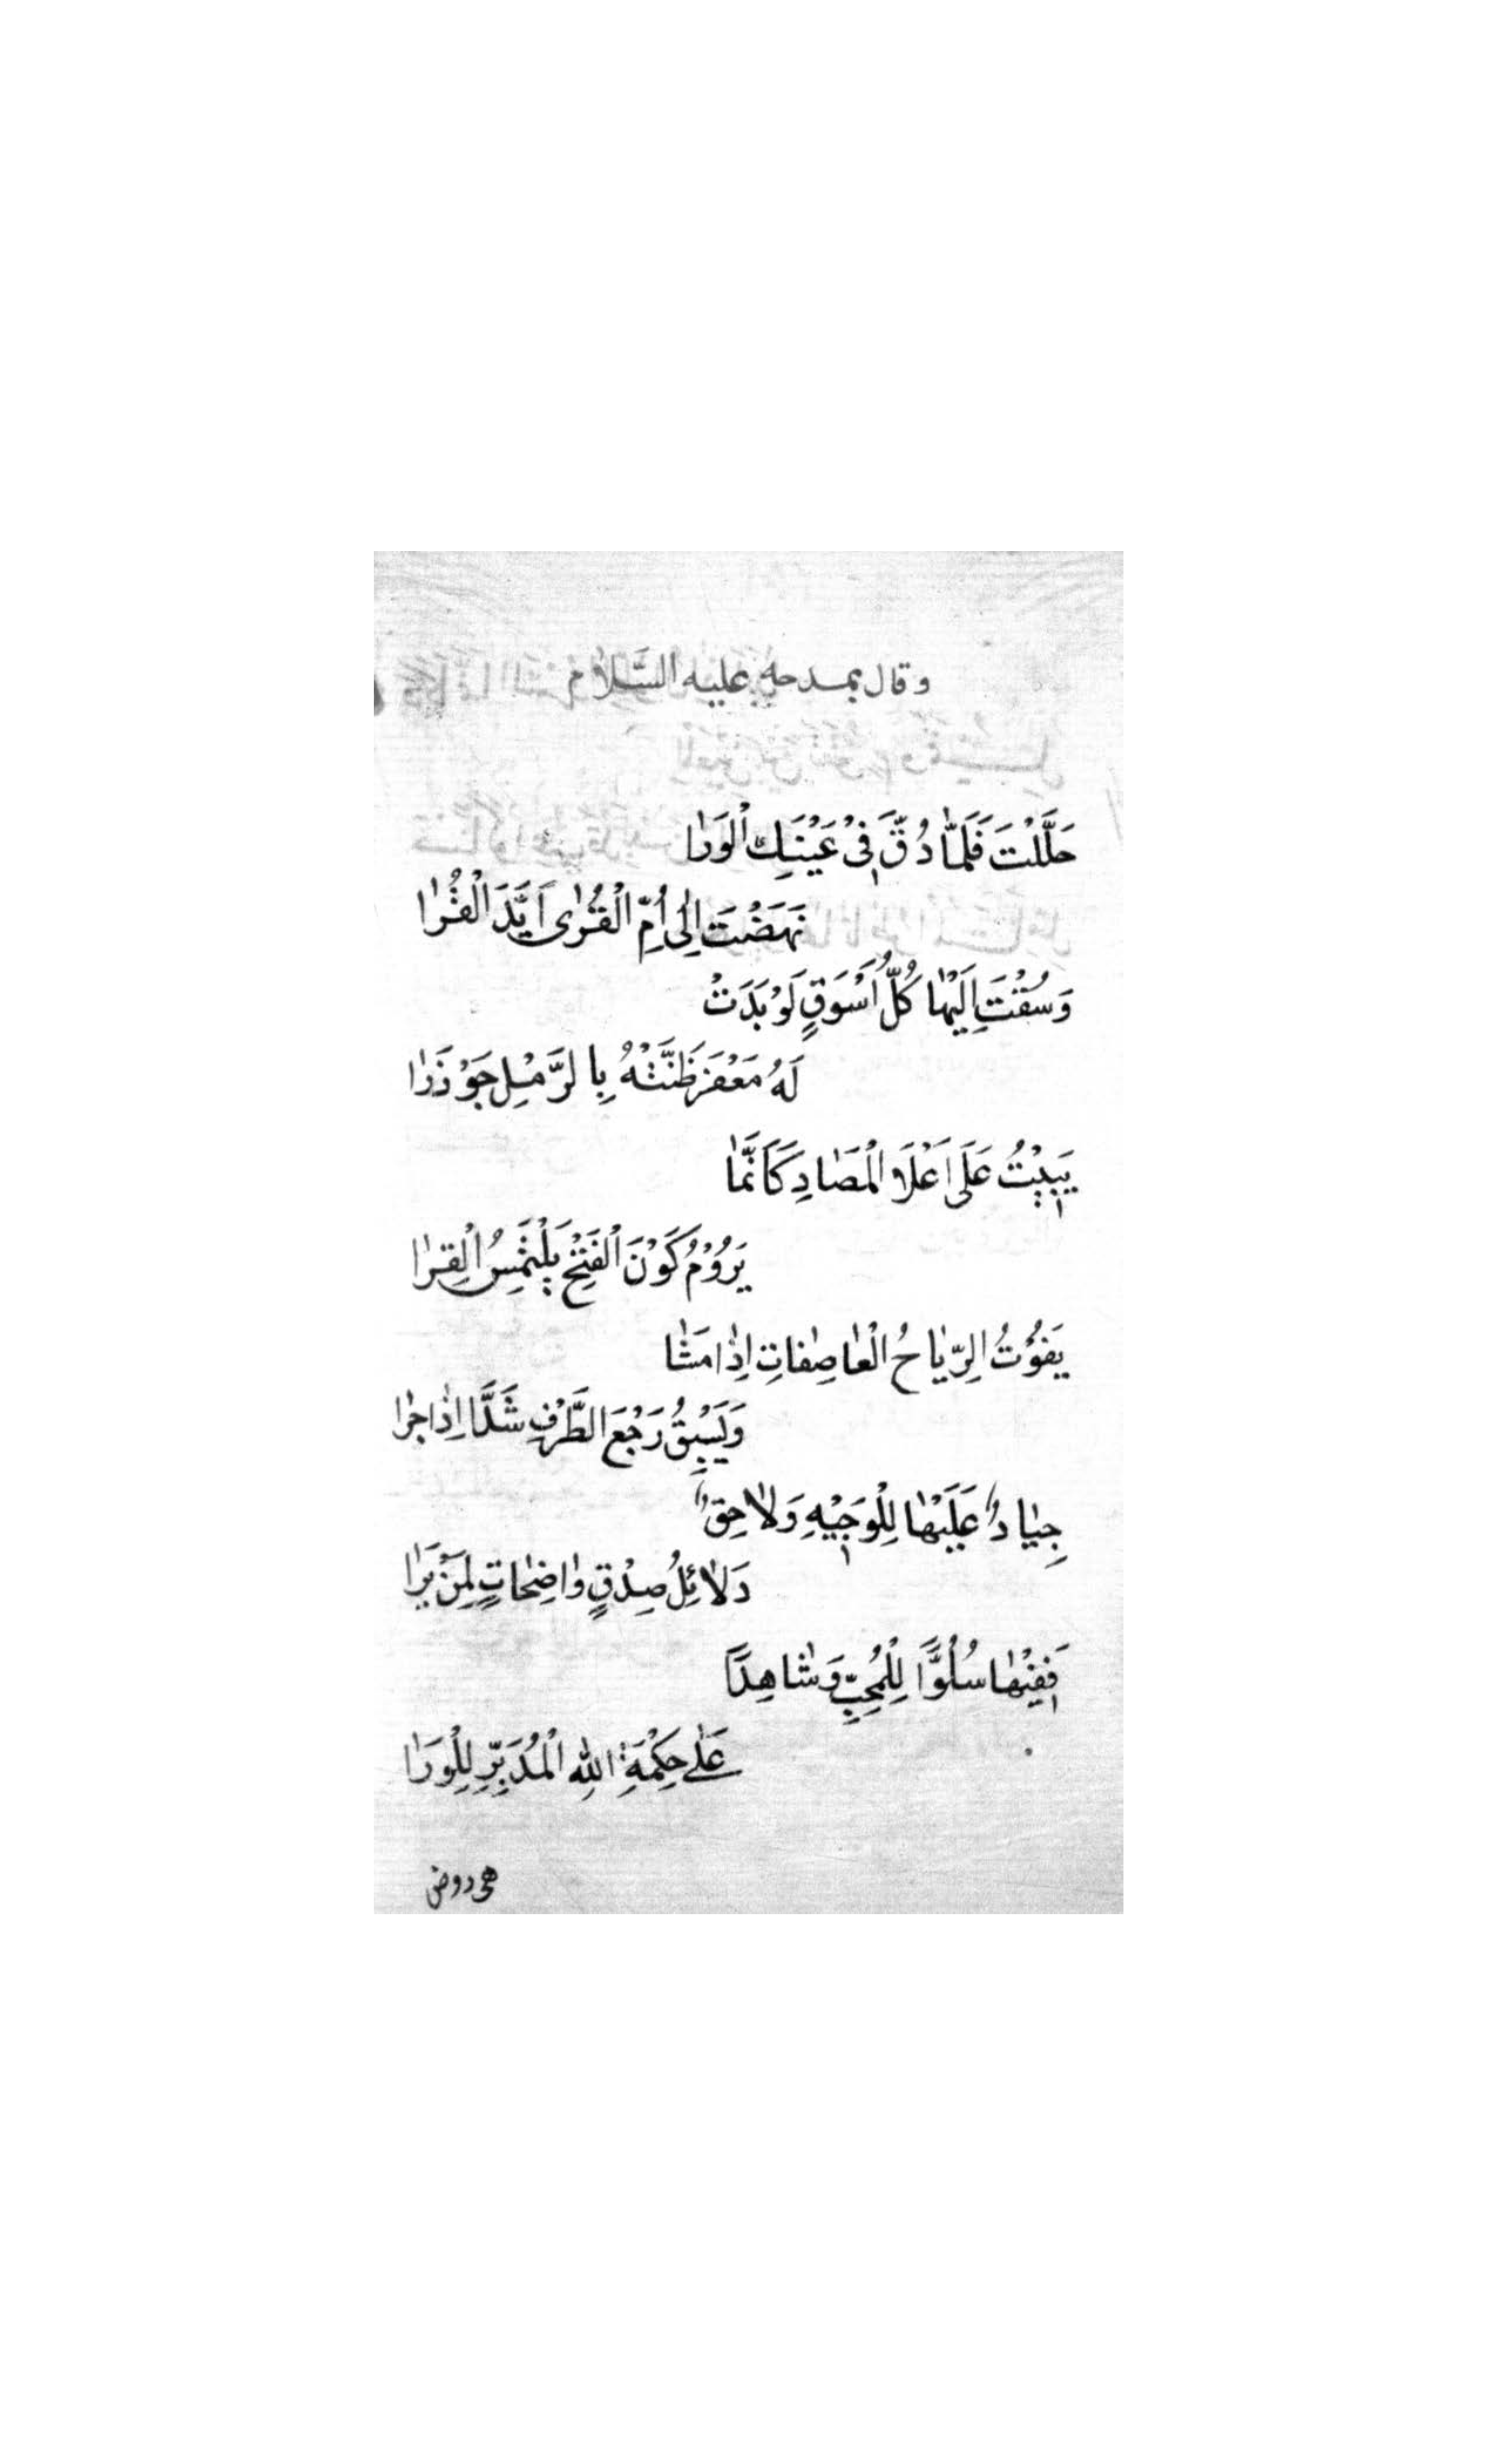 وقال بمدحه عليه السَّلام
حَلَّلْتَ فَلَمَّا دُقَّ فِىْ عَيْنَكِ الْوَرَا
نَهَضْتَ اِلٰى اُمِّ الْقُرٰى اَيَّدَ الْقُرَا
وَسُقْتَ اِلَيْهَا كُلَّ اَسْوَقٍ لَوْ بَدَتْ
لَهُ مَعْفَرَ ظَنَّتْهُ بِالرَّمْلِ جَوْذَرَا
يَبِيْتُ عَلَى اَعْلَا الْمَصَادِ كَاَنَّمَا
يَرُوْمُ كَوْنَ الْفَتْحِ يَلْتَمِسُ الْقِرَا
يَفُوْتُ الرِّيَاحُ الْعَاصِفَاتِ اِذَا مَشَا
وَيَسْبِقُ رَجْعَ الطَّرْفِ شَدَّا اِذَا جَرَا
جِيَادٌ عَلَيْهَا لِلْوَجِيْهِ وَلَاحِقٌ
دَلَائِلُ صِدْقٍ وَاضِحَاتٍ لِمَنْ يَرَا
فَفِيْهَا سُلُوًّا لِلْمُحِبِّ وَشَاهِدًا
عَلٰى حِكْمَةِ اللهِ الْمُدَبِّرِ لِلْوَرَا
هى روض